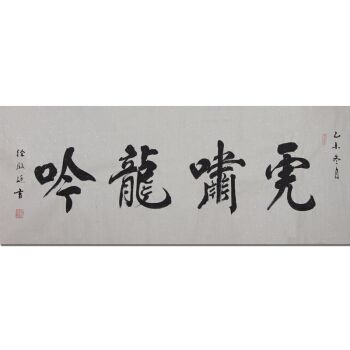 乙未冬月
虎嘯龍吟
徐 書